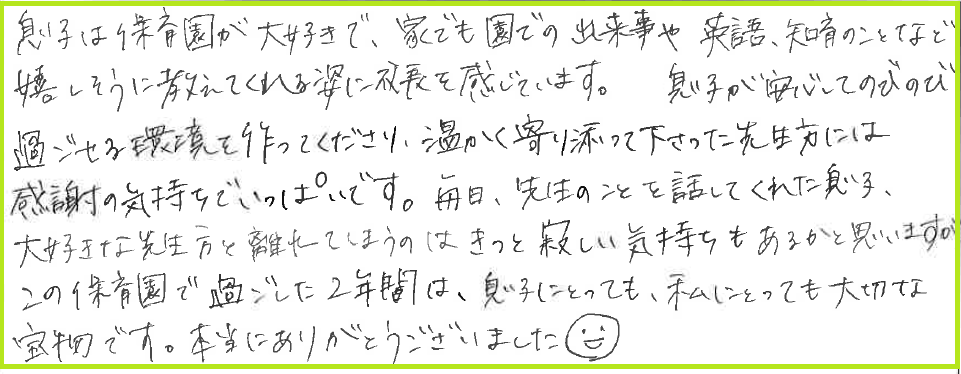 息子は保育園が大好きで、家でも園での出来事や英語、知育のことなど
嬉しそうに教えてくれる姿に成長を感じています。 息子が安心してのびのび
過ごせる環境を作ってくださり、温かく寄り添って下さった先生方には
感謝の気持ちでいっぱいです。毎日、先生のことを話してくれた息子、
大好きな先生方と離れてしまうのはきっと寂しい気持ちもあるかと思いますが
この保育園で過ごした2年間は、息子にとっても、私にとっても大切な
宝物です。本当にありがとうございました